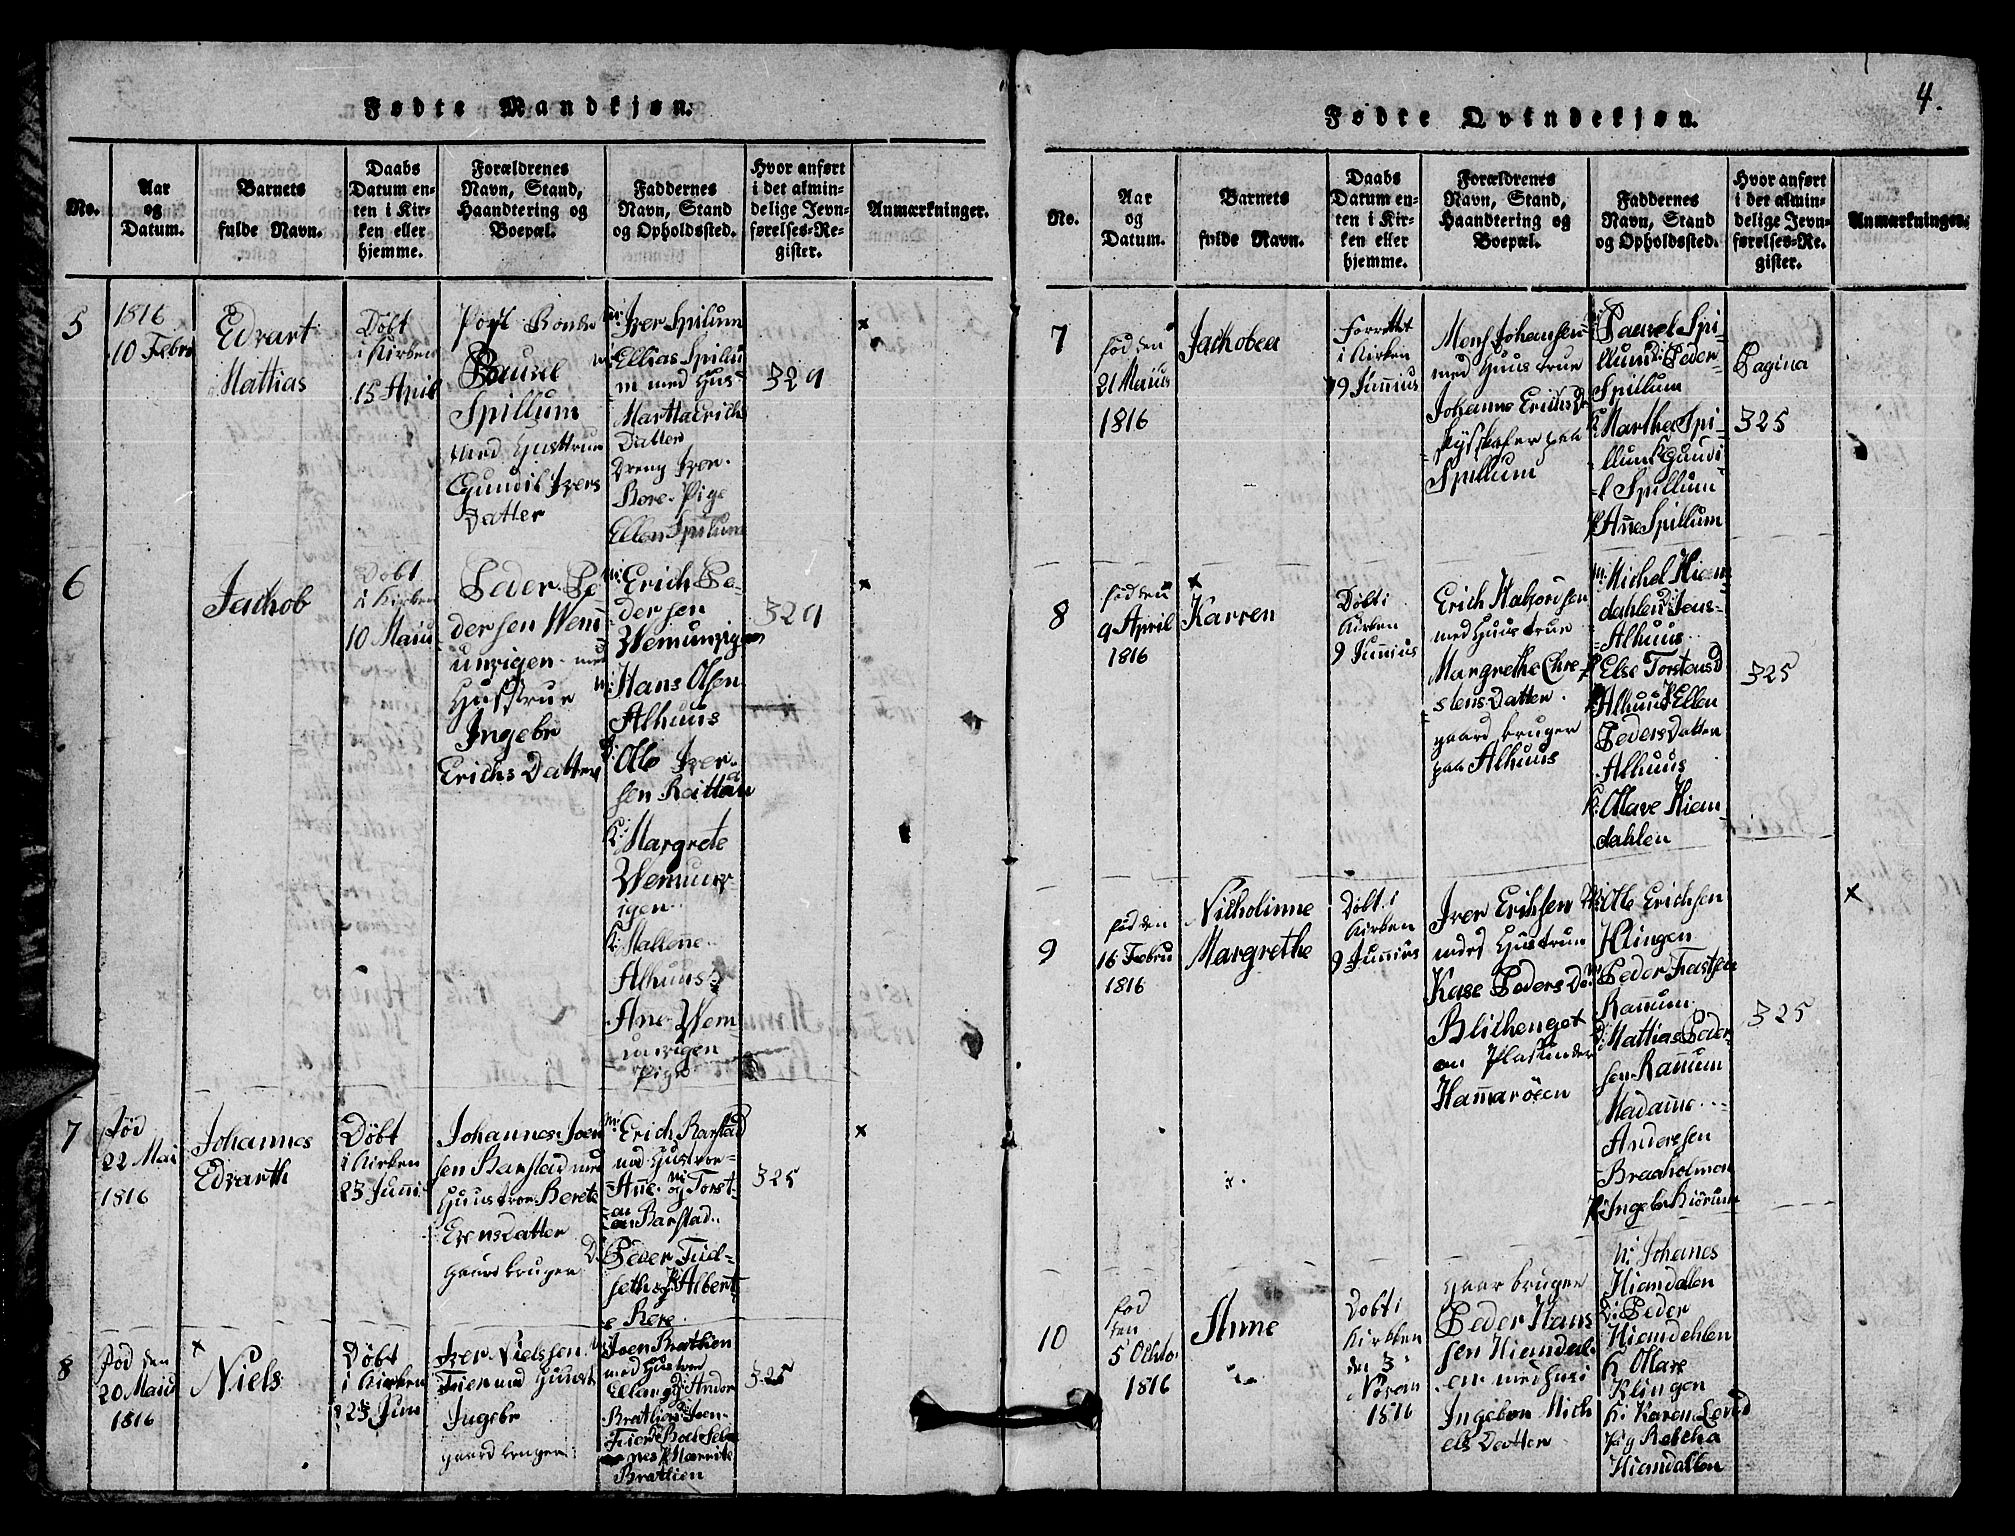 4.
Fødte Mandkjøn.
No.
Aar
og
Datum.
Barnets
fulde Navn.
Daabs
Datum en-
ten i Kir-
ken eller
hjemme.
Forældrenes
Navn, Stand,
Haandtering og
Boepæl.
Faddernes
Navn, Stand
og Opholdssted.
Hvor anført
i det almin-
delige Jevn-
førelses-Re-
gister.
Anmærkninger.
5
1816
10 Febr
Edvart
Mattias
Døbt
i Kirken
15 April
Bonde
Pauvel
Spillum
med Husttrue
Gundil Ivers
Datter
Iver Spilum
Ellias Spilu
m med Hus
Martha Erichs
Datter
Dreng Iver
Bere. Pige
Ellen Spilum
329
6
Jachob
Døbt
i Kirken
10 Maiu
Peder Pe
dersen Wem
unvigen med
Husstrue
Ingebr
Erichs Datter
Erich Pe-
dersen
Wemunvigen
Hans Olsen
Alhuus
Ole Iver
sen Reittan
K: Margrete
Wemunv-
igen
K: Mallene
Alhuus
Ane Wem
unvigen
Pige
329
7
Fød
22 Mai
1816
Johannes
Edvarth
Døbt
i Kirken
23 Juni
Johannes Joen
sen Barstad med
Huustroe Berete
Evensdatter
gaard bruger
Erich Barstad
med Hustroe
Anne og Torst-
en Barstad
Peder Tids-
seth og Albert
e Bere
325
8
Fød den
20 Maiu
1816
Niels
Døbt
i Kirken
23 Juni
Iver Nielssen
Fier med Huust
Ingebr
gaard bruger
Joen Bratlien
med Hustroe
Ellen og Andor
Bratlien Joen
Bratlien
325
Fødte Qvindekjøn.
No.
Aar
og
Datum.
Barnets
fulde Navn.
Daabs
Datum en-
ten i Kir-
ken eller
hjemme.
Forældrenes
Navn, Stand,
Haandtering og
Boepæl.
Faddernes
Navn, Stand
og Opholdssted.
Hvor anført
i det almin-
delige Jevn-
førelses-Re-
gister.
Anmærkninger.
7
fød den
21 Maius
1816
Jachobea
forrettet
i Kirken
9 Junnius
Mons Johansen
med Huustrue
Johanne Erichs Dr
paa
Spillum
Pauvel Spi-
llum D: Peder
Spillum
K: Martha Spi-
llum K Gundi-
l Spillum
P Anne Spillum
Pagina
325
8
fød den
9 April
1816
Karren
Døbt i
Kirken
9 Junnius
Erich Halvorsen
med Huustrue
Margrethe Chre
stens Datter
gaard bruger
paa Alhuus
M: Michel Hiem
dahlen D: Jens
Alhuus
Else Torstens D
Alhuus P Ellen
Peders Datter
Alhuus
K: Ollave Hiem
dahlen
325
9
fød den
16 Febru
1816
Nicholinne
Margrethe
Døbt i
Kirken
9 Junnius
Iver Erichsen
med Hustrue
Kase Peders Dr
Blichenget
en Plas under
Hammarøen
Ole Erichsen
Klingen
Peder
Rannum
D: Mattias Peder-
sen Rannum
Madamme
Andersen
Braaholmen
P: Ingebr Kiørum
325
10
fød
den
5 Octo
1816
Anne
Døbt i
Kirken
den 3
Novem
1816
gaar bruger
Peder Hans
sen Hiemdal-
en med husi
Ingebor Mich
els Datter
M: Johanes
Hiemdallen
D: Peder
Hiemdahlen
K Ollave
Klingen
K: Karen
Pig Rebecha
Hiemdallen